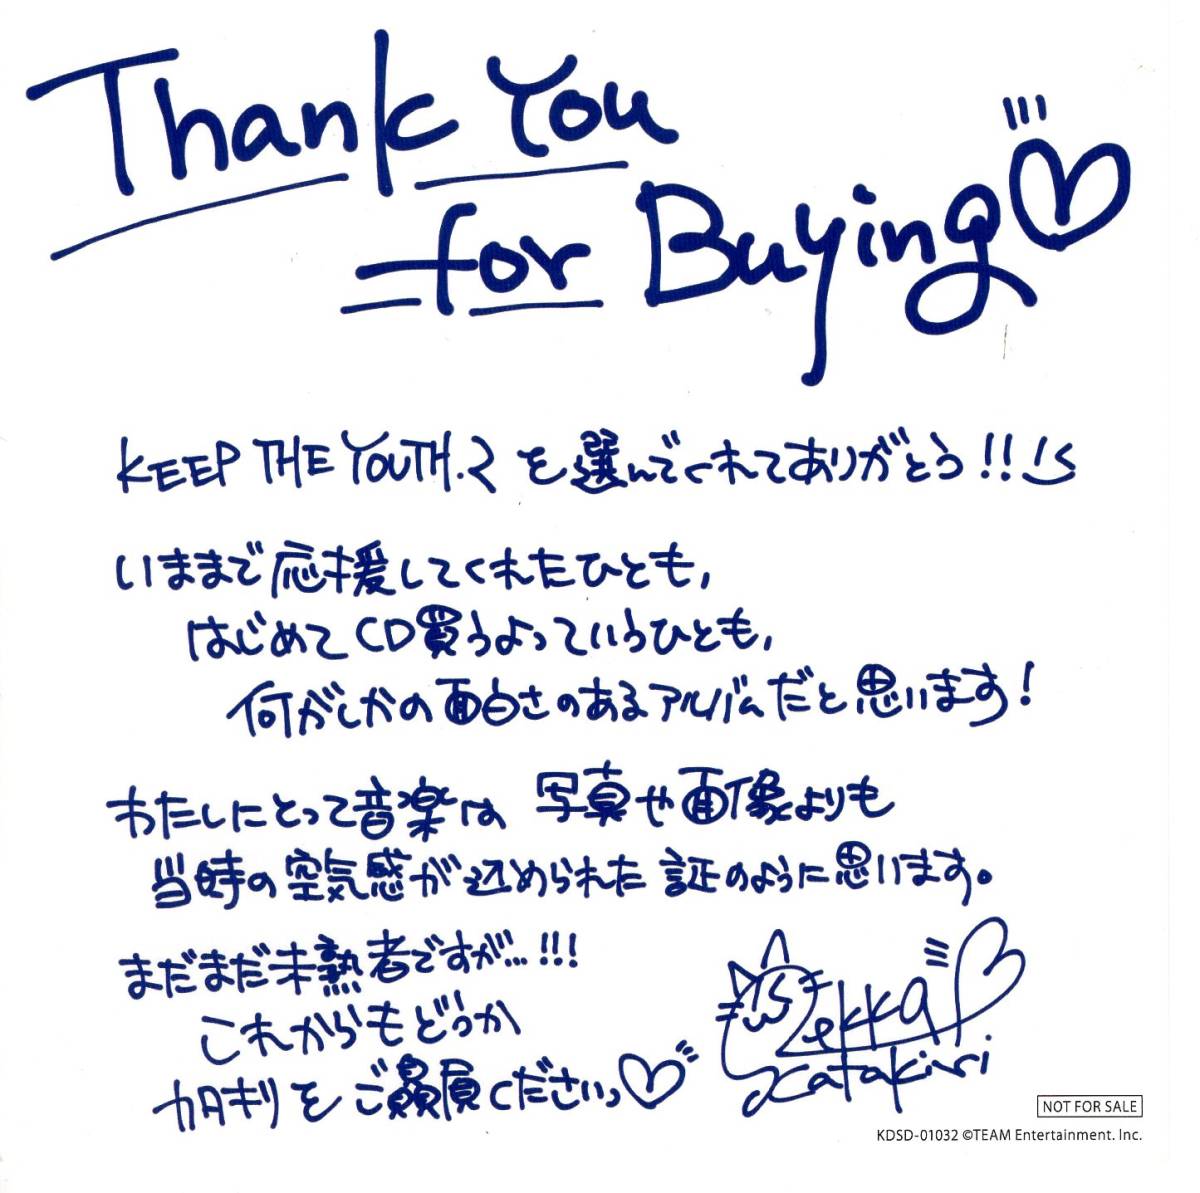 Thank You
for Buying
KEEP THE YOUTH.2 を選んでくれてありがとう!!!
いままで応援してくれたひとも,
はじめてCD買うよっていうひとも,
何がしかの面白さのあるアルバムだと思います!
わたしにとって音楽は 写真や画像よりも
当時の空気感が込められた証のように思います。
まだまだ未熟者ですが...!!!
これからもどうか
カタギリをご贔屓くださいっ
Rekka
Catakiri
NOT FOR SALE
KDSD-01032 ©TEAM Entertainment. Inc.